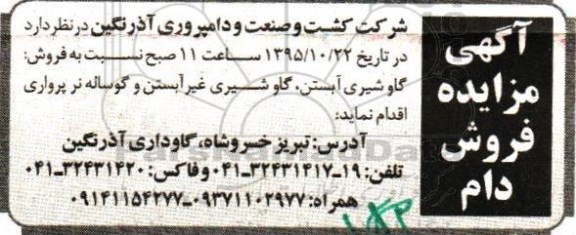 آگهی
مزایده
فروش
دام
شرکت کشت و صنعت و دامپروری آذرنگین در نظر دارد
در تاریخ ۱۳۹۵/۱۰/۲۲ ساعت ۱۱ صبح نسبت به فروش:
گاو شیری آبستن، گاو شیری غیرآبستن و گوساله نر پرواری
اقدام نماید:
آدرس: تبریز خسروشاه، گاوداری آذرنگین
تلفن: ۱۹-۳۲۴۳۱۴۱۷-۰۴۱ و فاکس: ۳۲۴۳۱۴۲۰-۰۴۱
همراه: ۰۹۳۷۱۱۰۲۹۷۷-۰۹۱۴۱۱۵۴۲۷۷